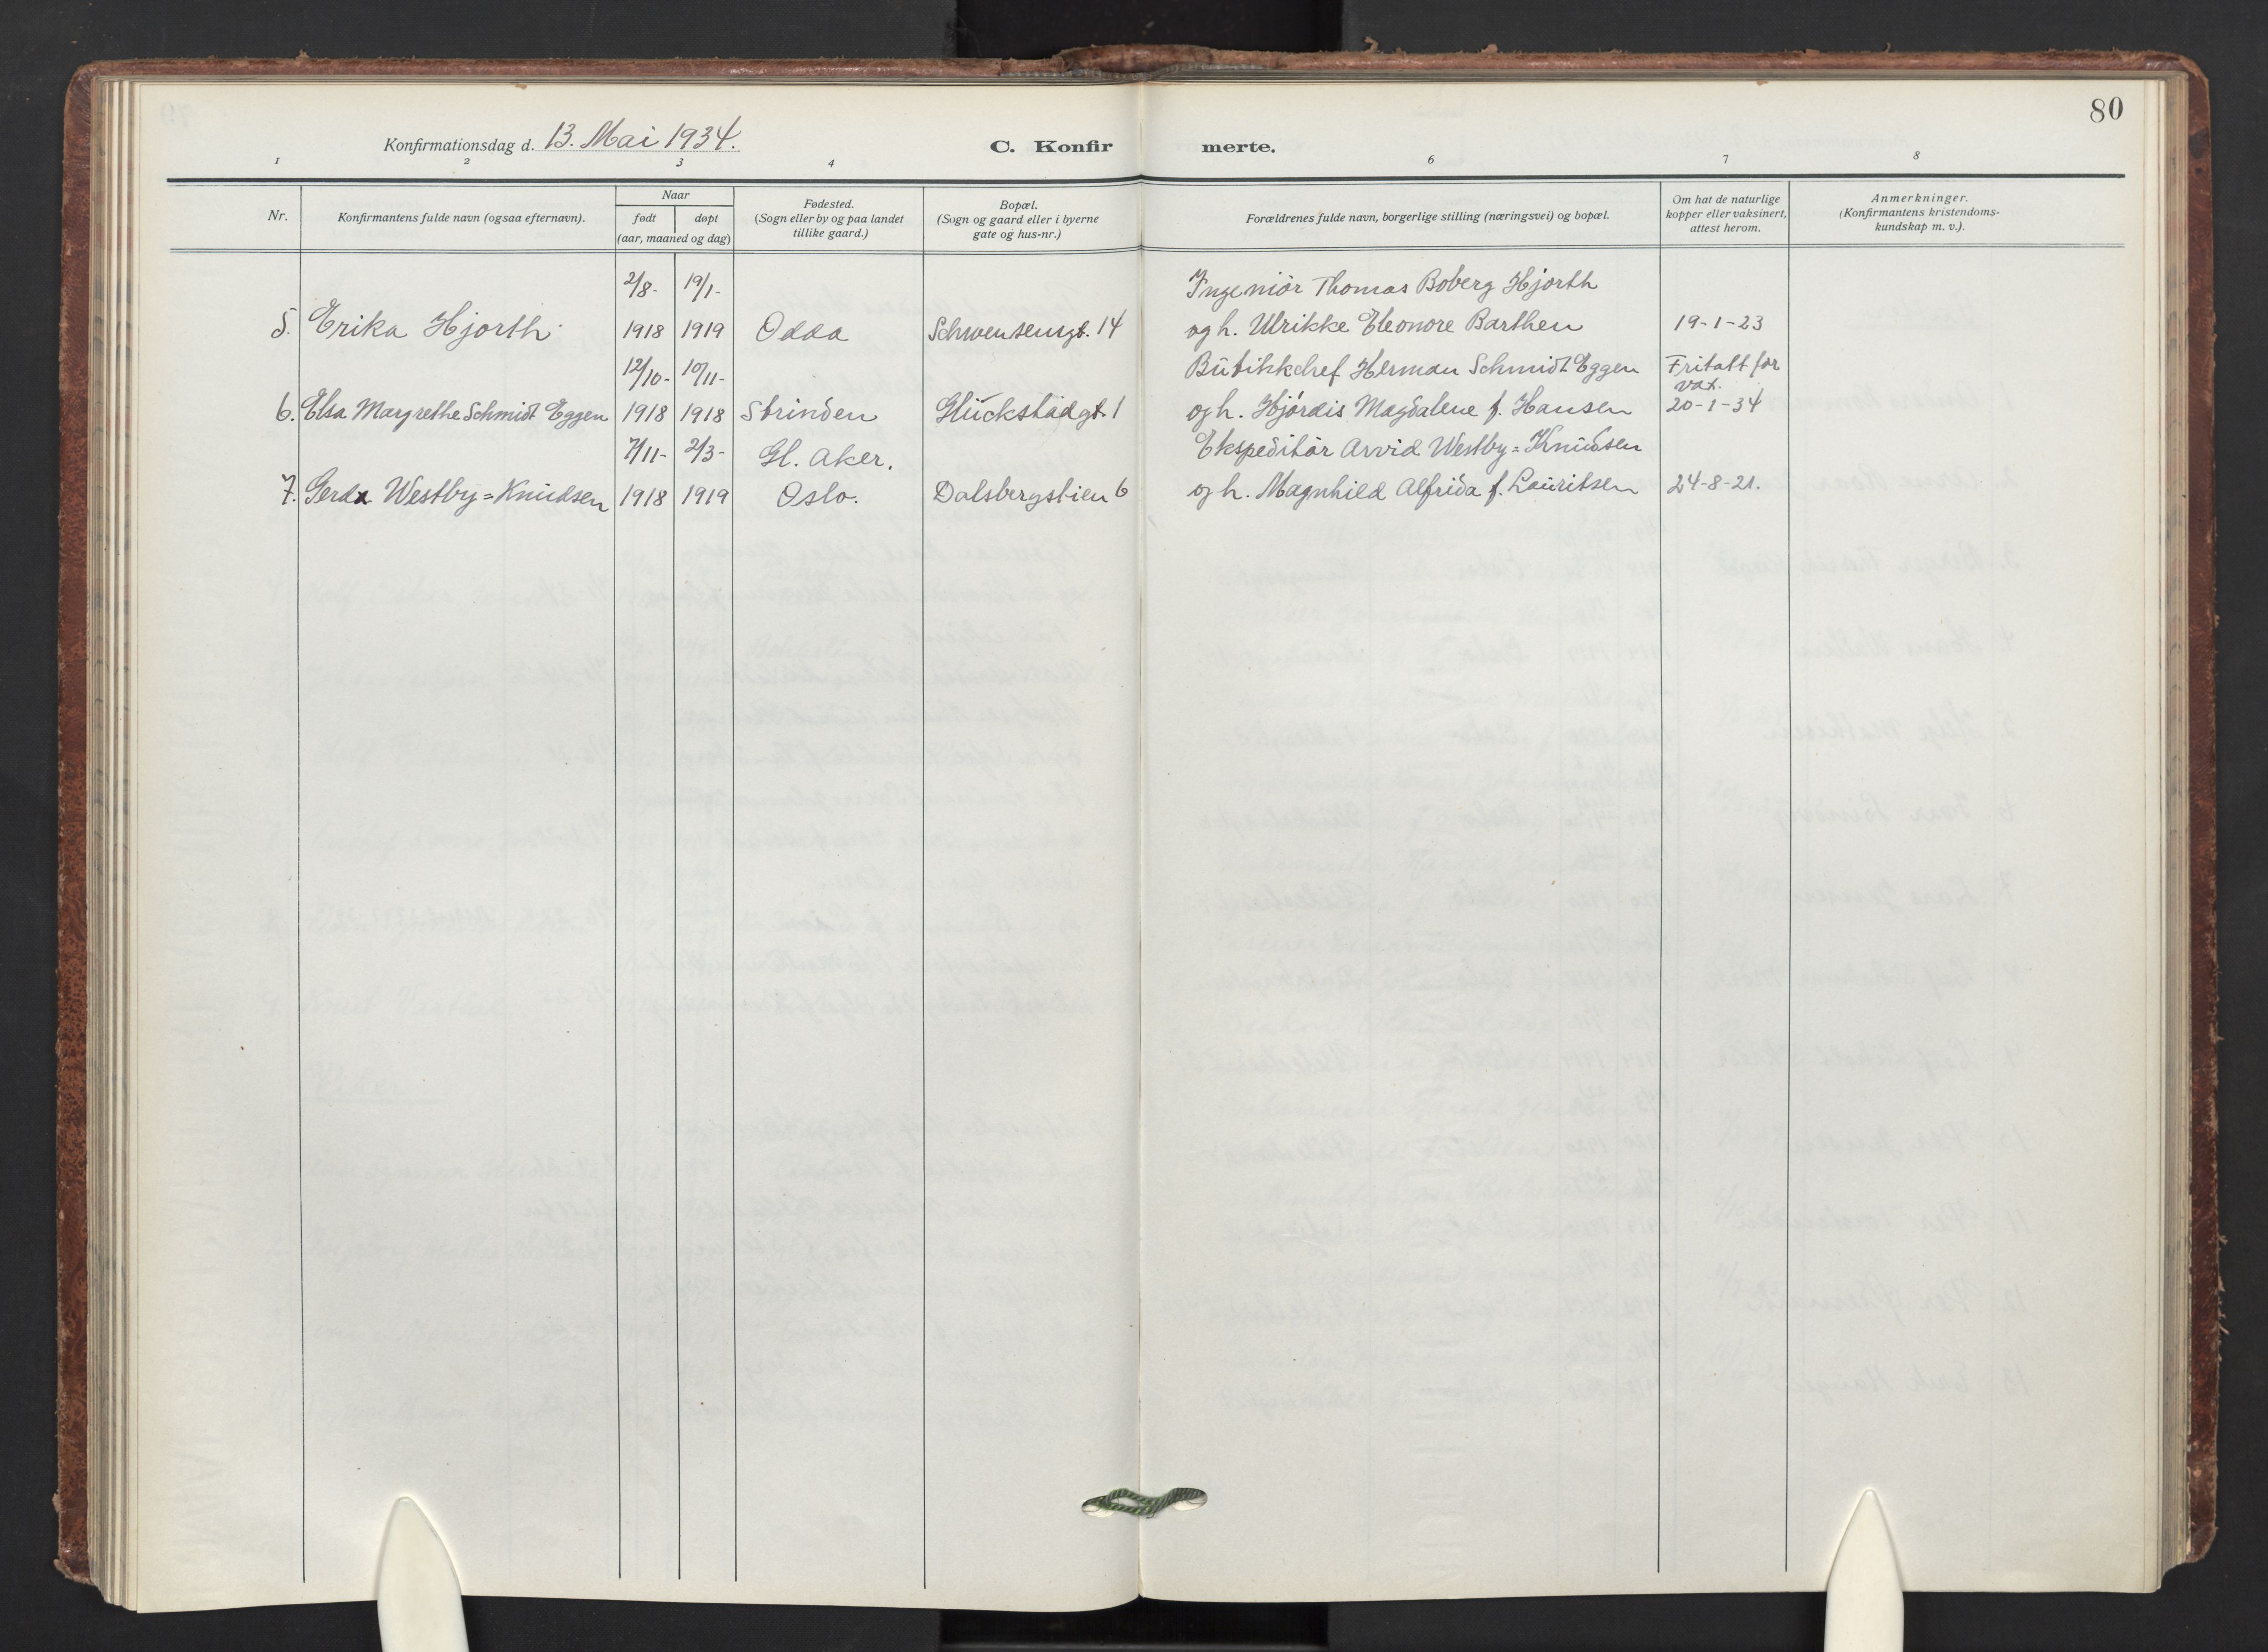 80
Konfirmationsdag d. 13. Mai 1934.
C. Konfir merte.
1 2 3 4 6 7 8
Nr.
Konfirmantens fulde navn (ogsaa efternavn).
Naar
født døpt
(aar, maaned og dag)
Fødested.
(Sogn eller by og paa landet
tillike gaard.)
Bopæl.
(Sogn og gaard eller i byerne
gate og hus-nr.)
Forældrenes fulde navn, borgerlige stilling (næringsvei) og bopæl.
Om hat de naturlige
kopper eller vaksinert,
attest herom.
Anmerkninger.
(Konfirmantens kristendoms-
kundskap m. v.).
2/8- 19/1- Ingeniör Thomas Boberg Hjorth
5. Erika Hjorth 1918 1919 Odda Schwensensgt. 14 og h. Ulrikke Eleonore Barthen 19-1-23
12/10- 10/11- Butikkchef Herman Schmidt Eggen Fritatt for
vax.
6. Elsa Margrethe Schmidt Eggen 1918 1918 Strinden Glückstadgt. 1 og h. Hjördis Magdalene f. Hansen 20-1-34
7/11- 2/3- Gl. Aker. Ekspeditör Arvid Westby=Knudsen
7. Gerda Westby=Knudsen 1918 1919 Oslo. Dalsbergstien 6 og h. Magnhild Alfrida f. Lauritsen 24-8-21.